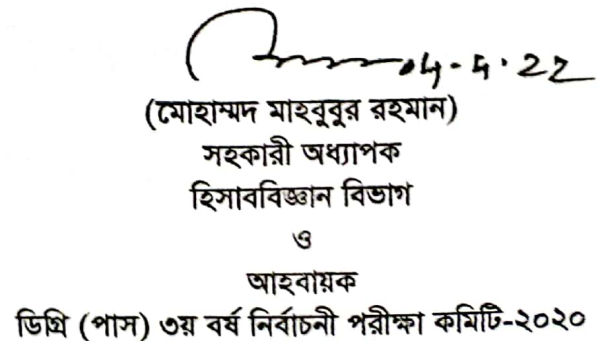 04-4-22
(মোহাম্মদ মাহবুবুর রহমান)
সহকারী অধ্যাপক
হিসাববিজ্ঞান বিভাগ
ও
আহবায়ক
ডিগ্রি (পাস) ৩য় বর্ষ নির্বাচনী পরীক্ষা কমিটি-২০২০